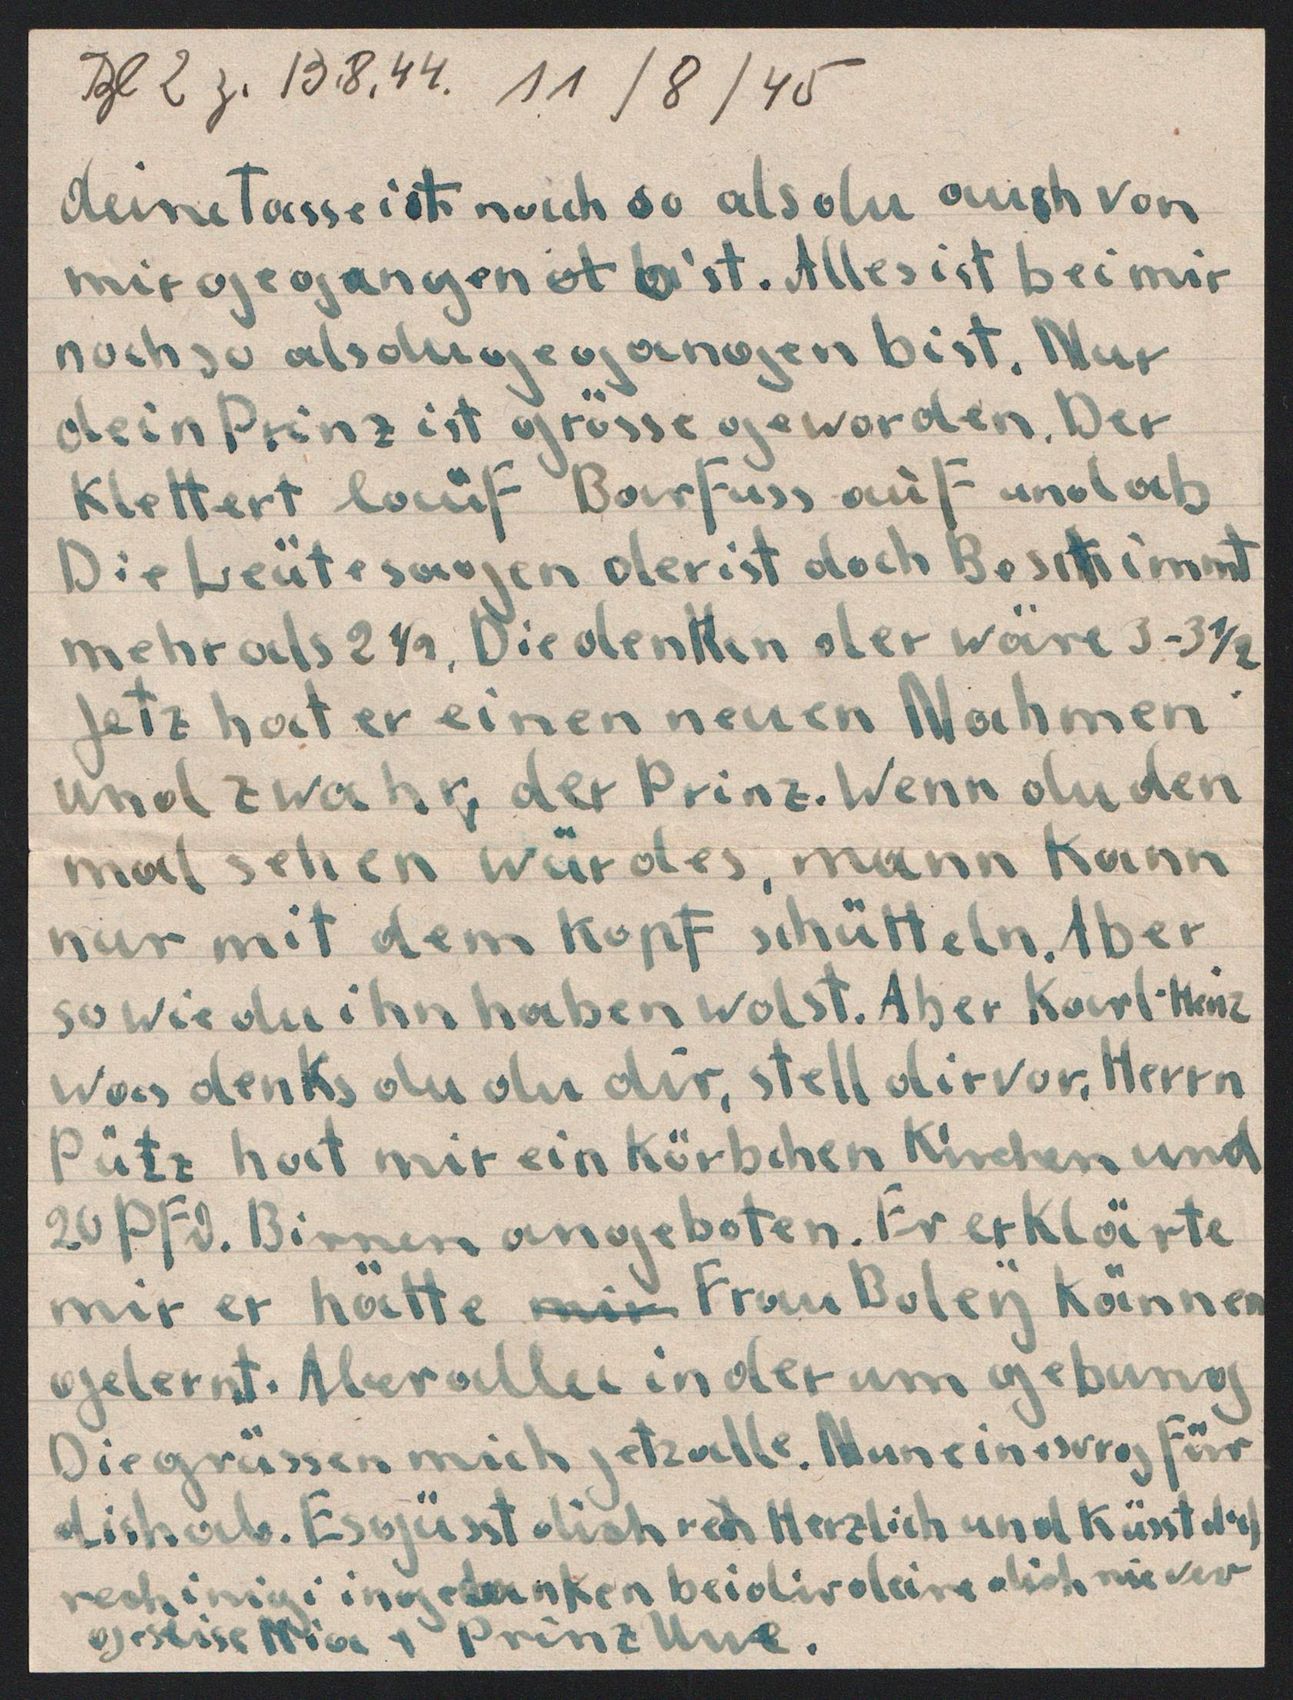 Bl 2 z. 13.8.44. 11/8/45
deine Tasse ist noch so als du auch von
mir gegangen bist. Alles ist bei mir
noch so als du gegangen bist. Nur
dein Prinz ist grösse geworden. Der
Klettert lauf Barfuss auf und ab
Die Leüte sagen der ist doch Bestimmt
mehr als 2 1/2, Die denken der wäre 3-3 1/2
Jetz hat er einen neuen Nahmen
und zwahr, der Prinz. Wenn du den
mal sehen würdes, mann Kann
nur mit dem Kopf schütteln. Aber
so wie du ihn haben wolst. Aber Karl-Heinz
was denks du du dir, stell dir vor, Herrn
Pütz hat mir ein Körbchen Kirchen und
20 PFd. Birnen angeboten. Er erklärte
mir er hätte mir Frau Boleÿ Kännen
gelernt. Aber alle in der um gebung
Die grüssen mich jetz alle. Nun ein für
dish ab. Es güsst dich rech Herzlich und Küsst dich
rech inigi in gedanken bei dir deine dich nie ver
Mia + Prinz Uwe.